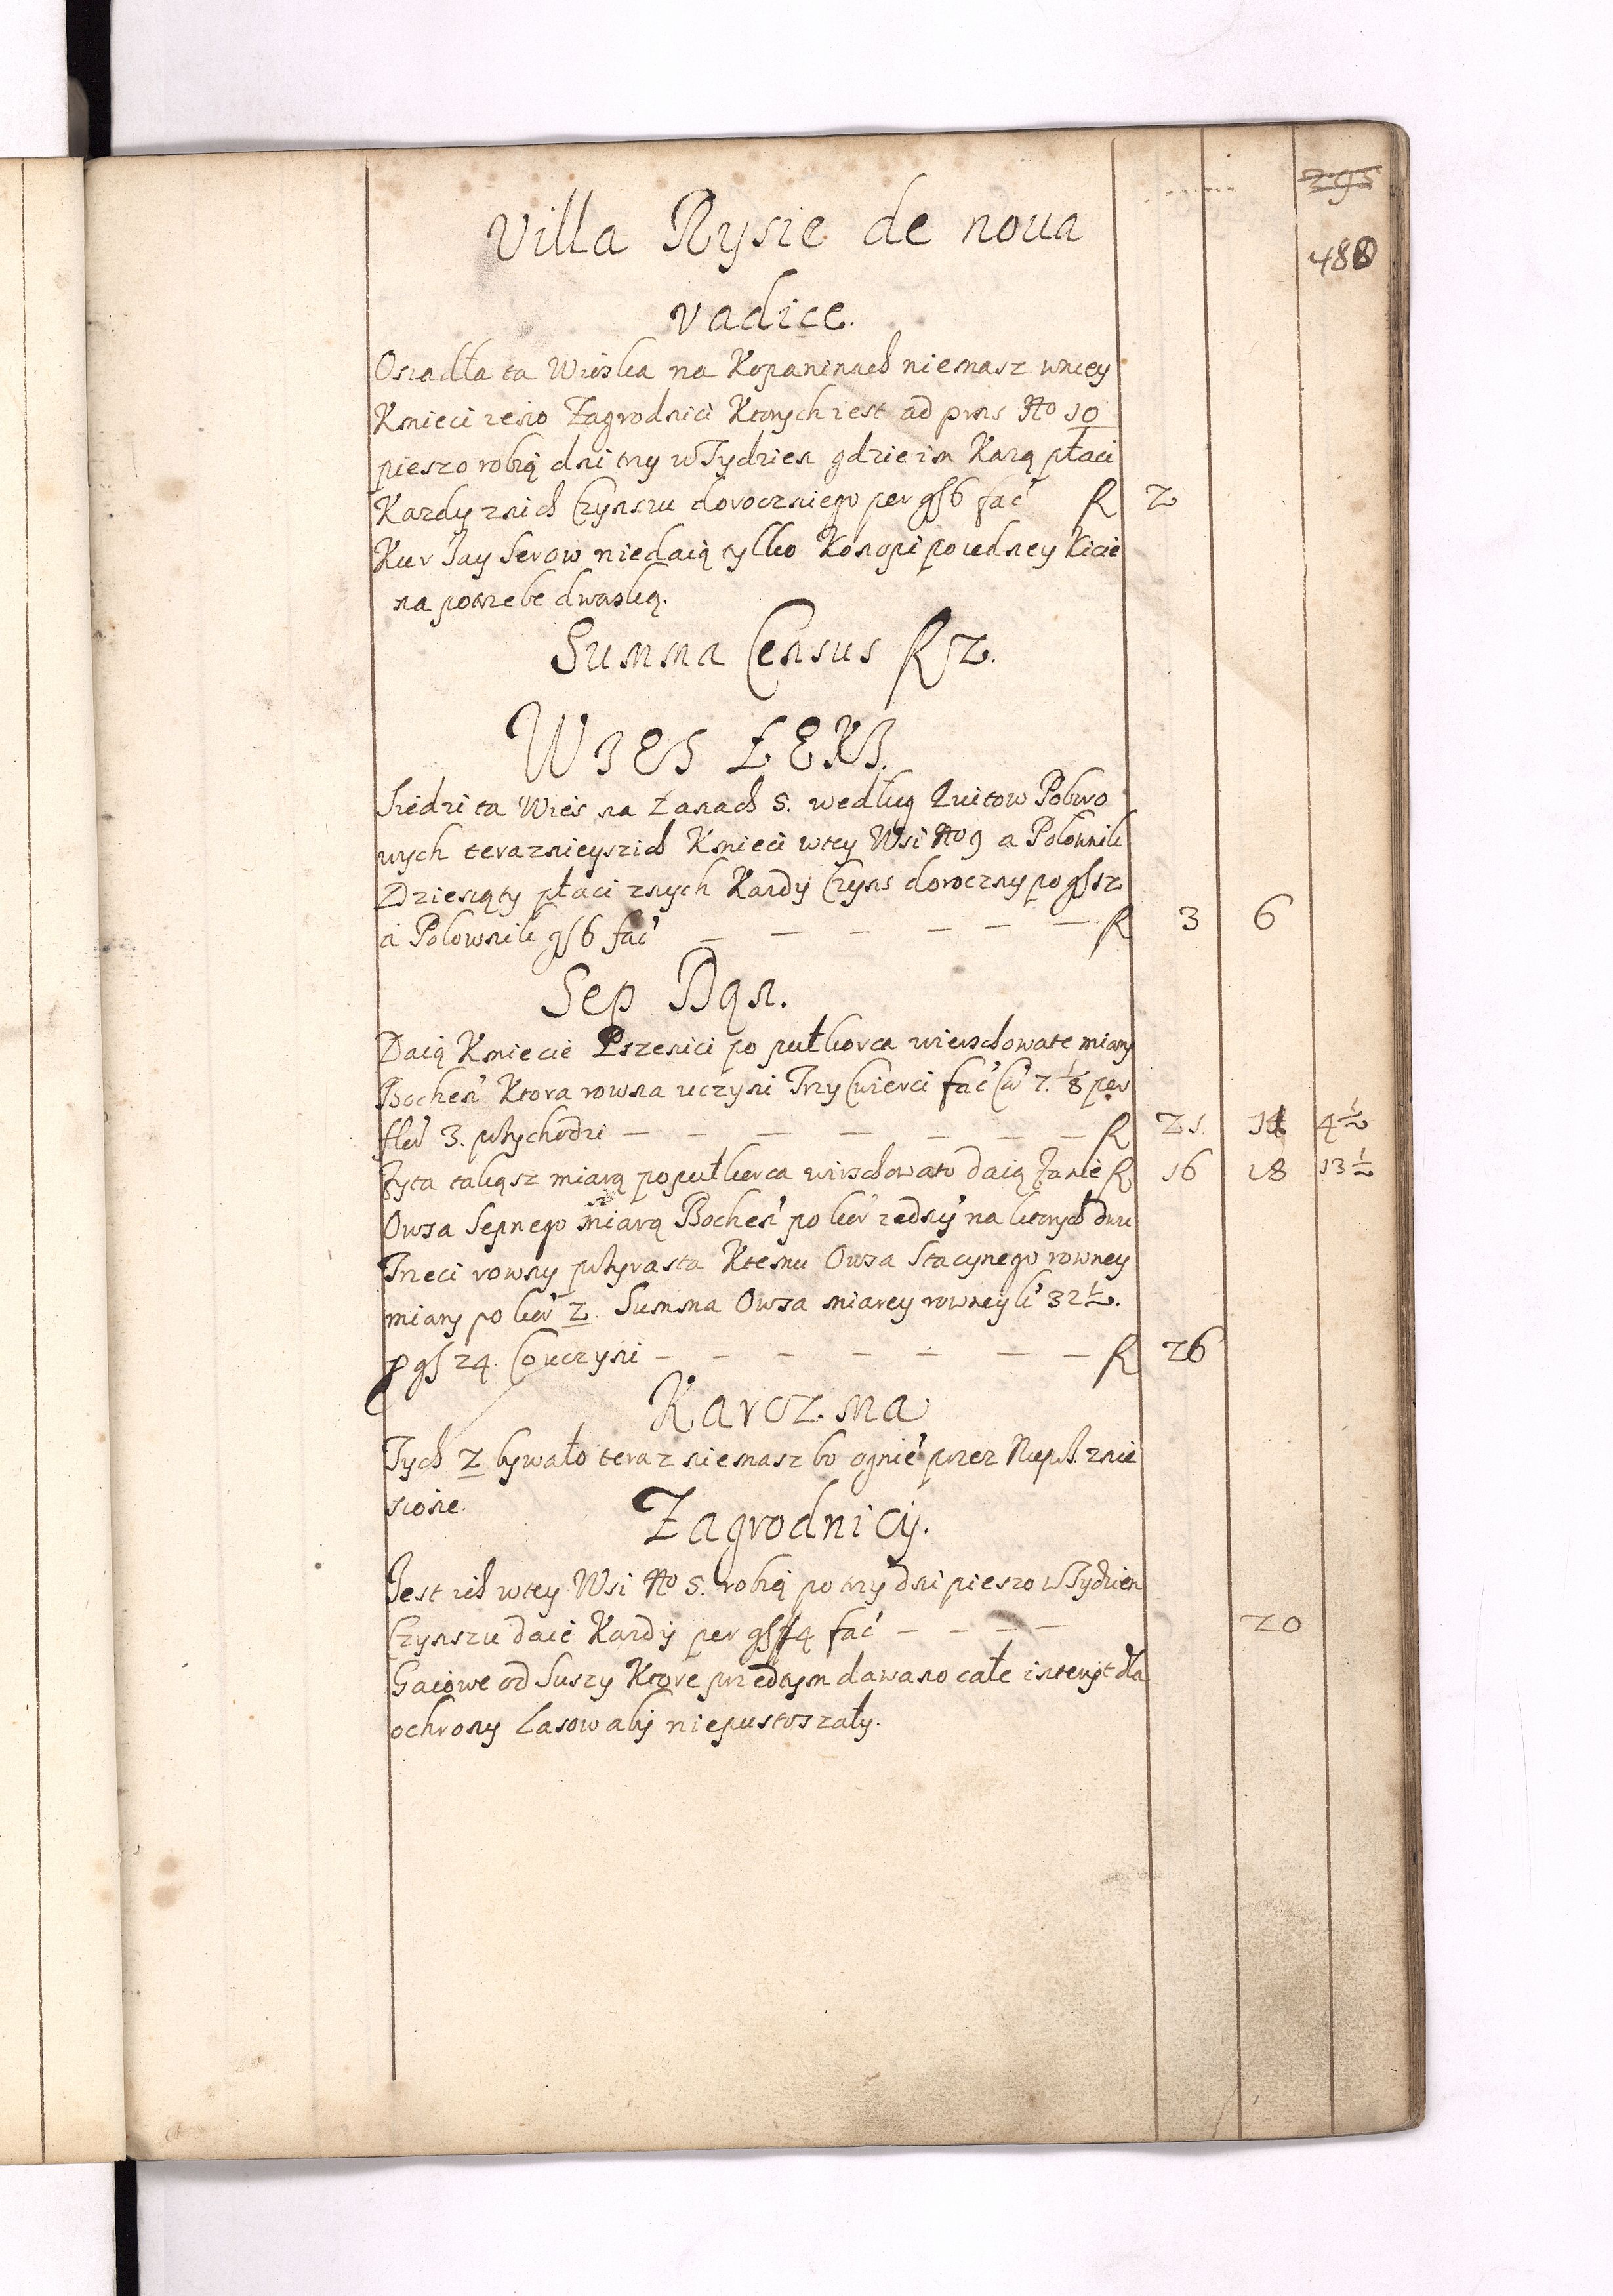 395
480
Villa Rysie de noua
radice.
Osiadła ta Wioska na Kopaninach niemasz wniey
Kmieci ieno Zagrodnici Ktorych iest ad prns No 10
pieszo robią dni trzy w Tydzien gdzie im Karzą płaci
Kazdy znich Czynszu dorocznego per gs 6 fac R 2
Kur Jay Serow niedaią tylko Konopi po iedney Kicie
na potrzebe dworską.
Summa Census R 2.
WIES ŁĘKI.
Siedzi ta Wieś na Łanach 5. według Quitow Poboro
wych teraznieyszich Kmieci wtey Wsi No 9 a Polownik
Dziesiąty płaci znych Kazdy Czyns doroczny po gs 12
a Polownik gs 6 fac R 3 6
Sep Dgn.
Daią Kmiecie Pszenici po pułkorca wierzchowate miary
Bochen Ktora rowna uczyni Trzy Cwierci fac Co 7. 1/8 per
fl 3. przychodzi R 21 11 4 1/2
Zyta takąsz miarą po pułkorca wirzchowato daią Zanie R 16 18 13 1/2
Owsa Sepnego miarą Bochen po kor
Trzeci rowny przyrasta Ktemu Owsa Stacynego rowney
miary po kor 2. Summa Owsa miarey rowney k 32 1/2.
p gs 24. Co uczyni R 26
Karczma
Tych 2 bywało teraz niemasz bo ognie przez znie
sione.
Zagrodnicy.
Jest ich wtey Wsi No 5. robią po trzy dni pieszo w Tydzien
Czynszu daie Kazdy per gs 4 fac 20
Gaiowe od Suszy Ktore przedtym dawano całe dla
ochrony Lasow aby niepustoszały.